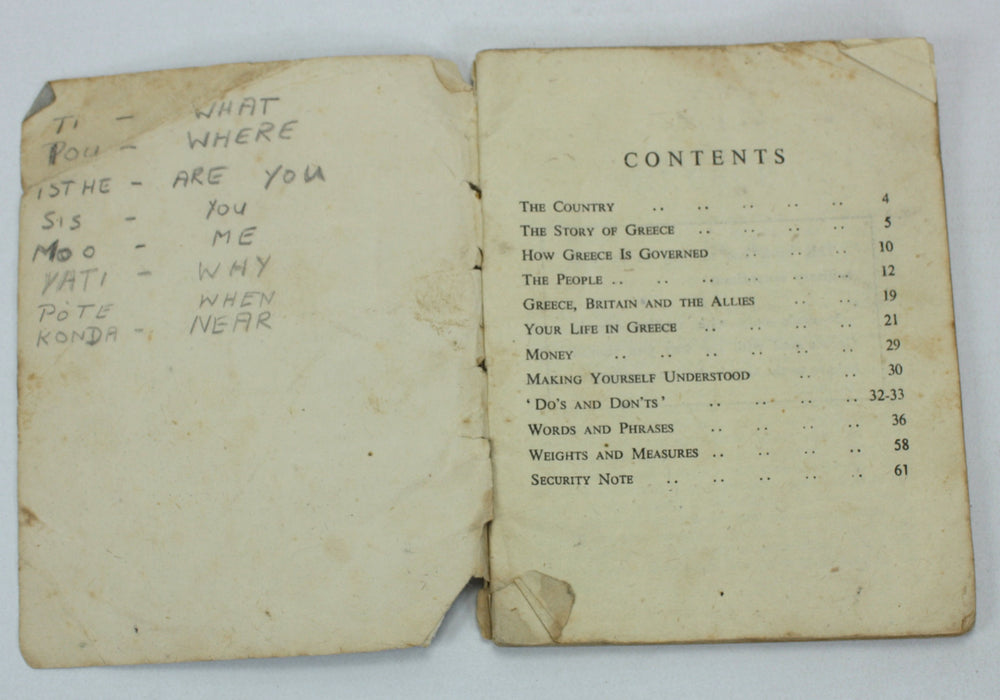 TI - WHAT
POU - WHERE
ISTHE - ARE YOU
SIS - YOU
MOO - ME
YATI - WHY
PÒTE WHEN
KONDA - NEAR
CONTENTS
THE COUNTRY .. .. .. .. .. 4
THE STORY OF GREECE .. .. .. .. 5
HOW GREECE IS GOVERNED .. .. .. 10
THE PEOPLE .. .. .. .. .. .. 12
GREECE, BRITAIN AND THE ALLIES .. .. 19
YOUR LIFE IN GREECE .. .. .. .. 21
MONEY .. .. .. .. .. .. 29
MAKING YOURSELF UNDERSTOOD .. .. 30
'DO'S AND DON'TS' .. .. .. .. 32-33
WORDS AND PHRASES .. .. .. .. 36
WEIGHTS AND MEASURES .. .. .. .. 58
SECURITY NOTE .. .. .. .. .. 61